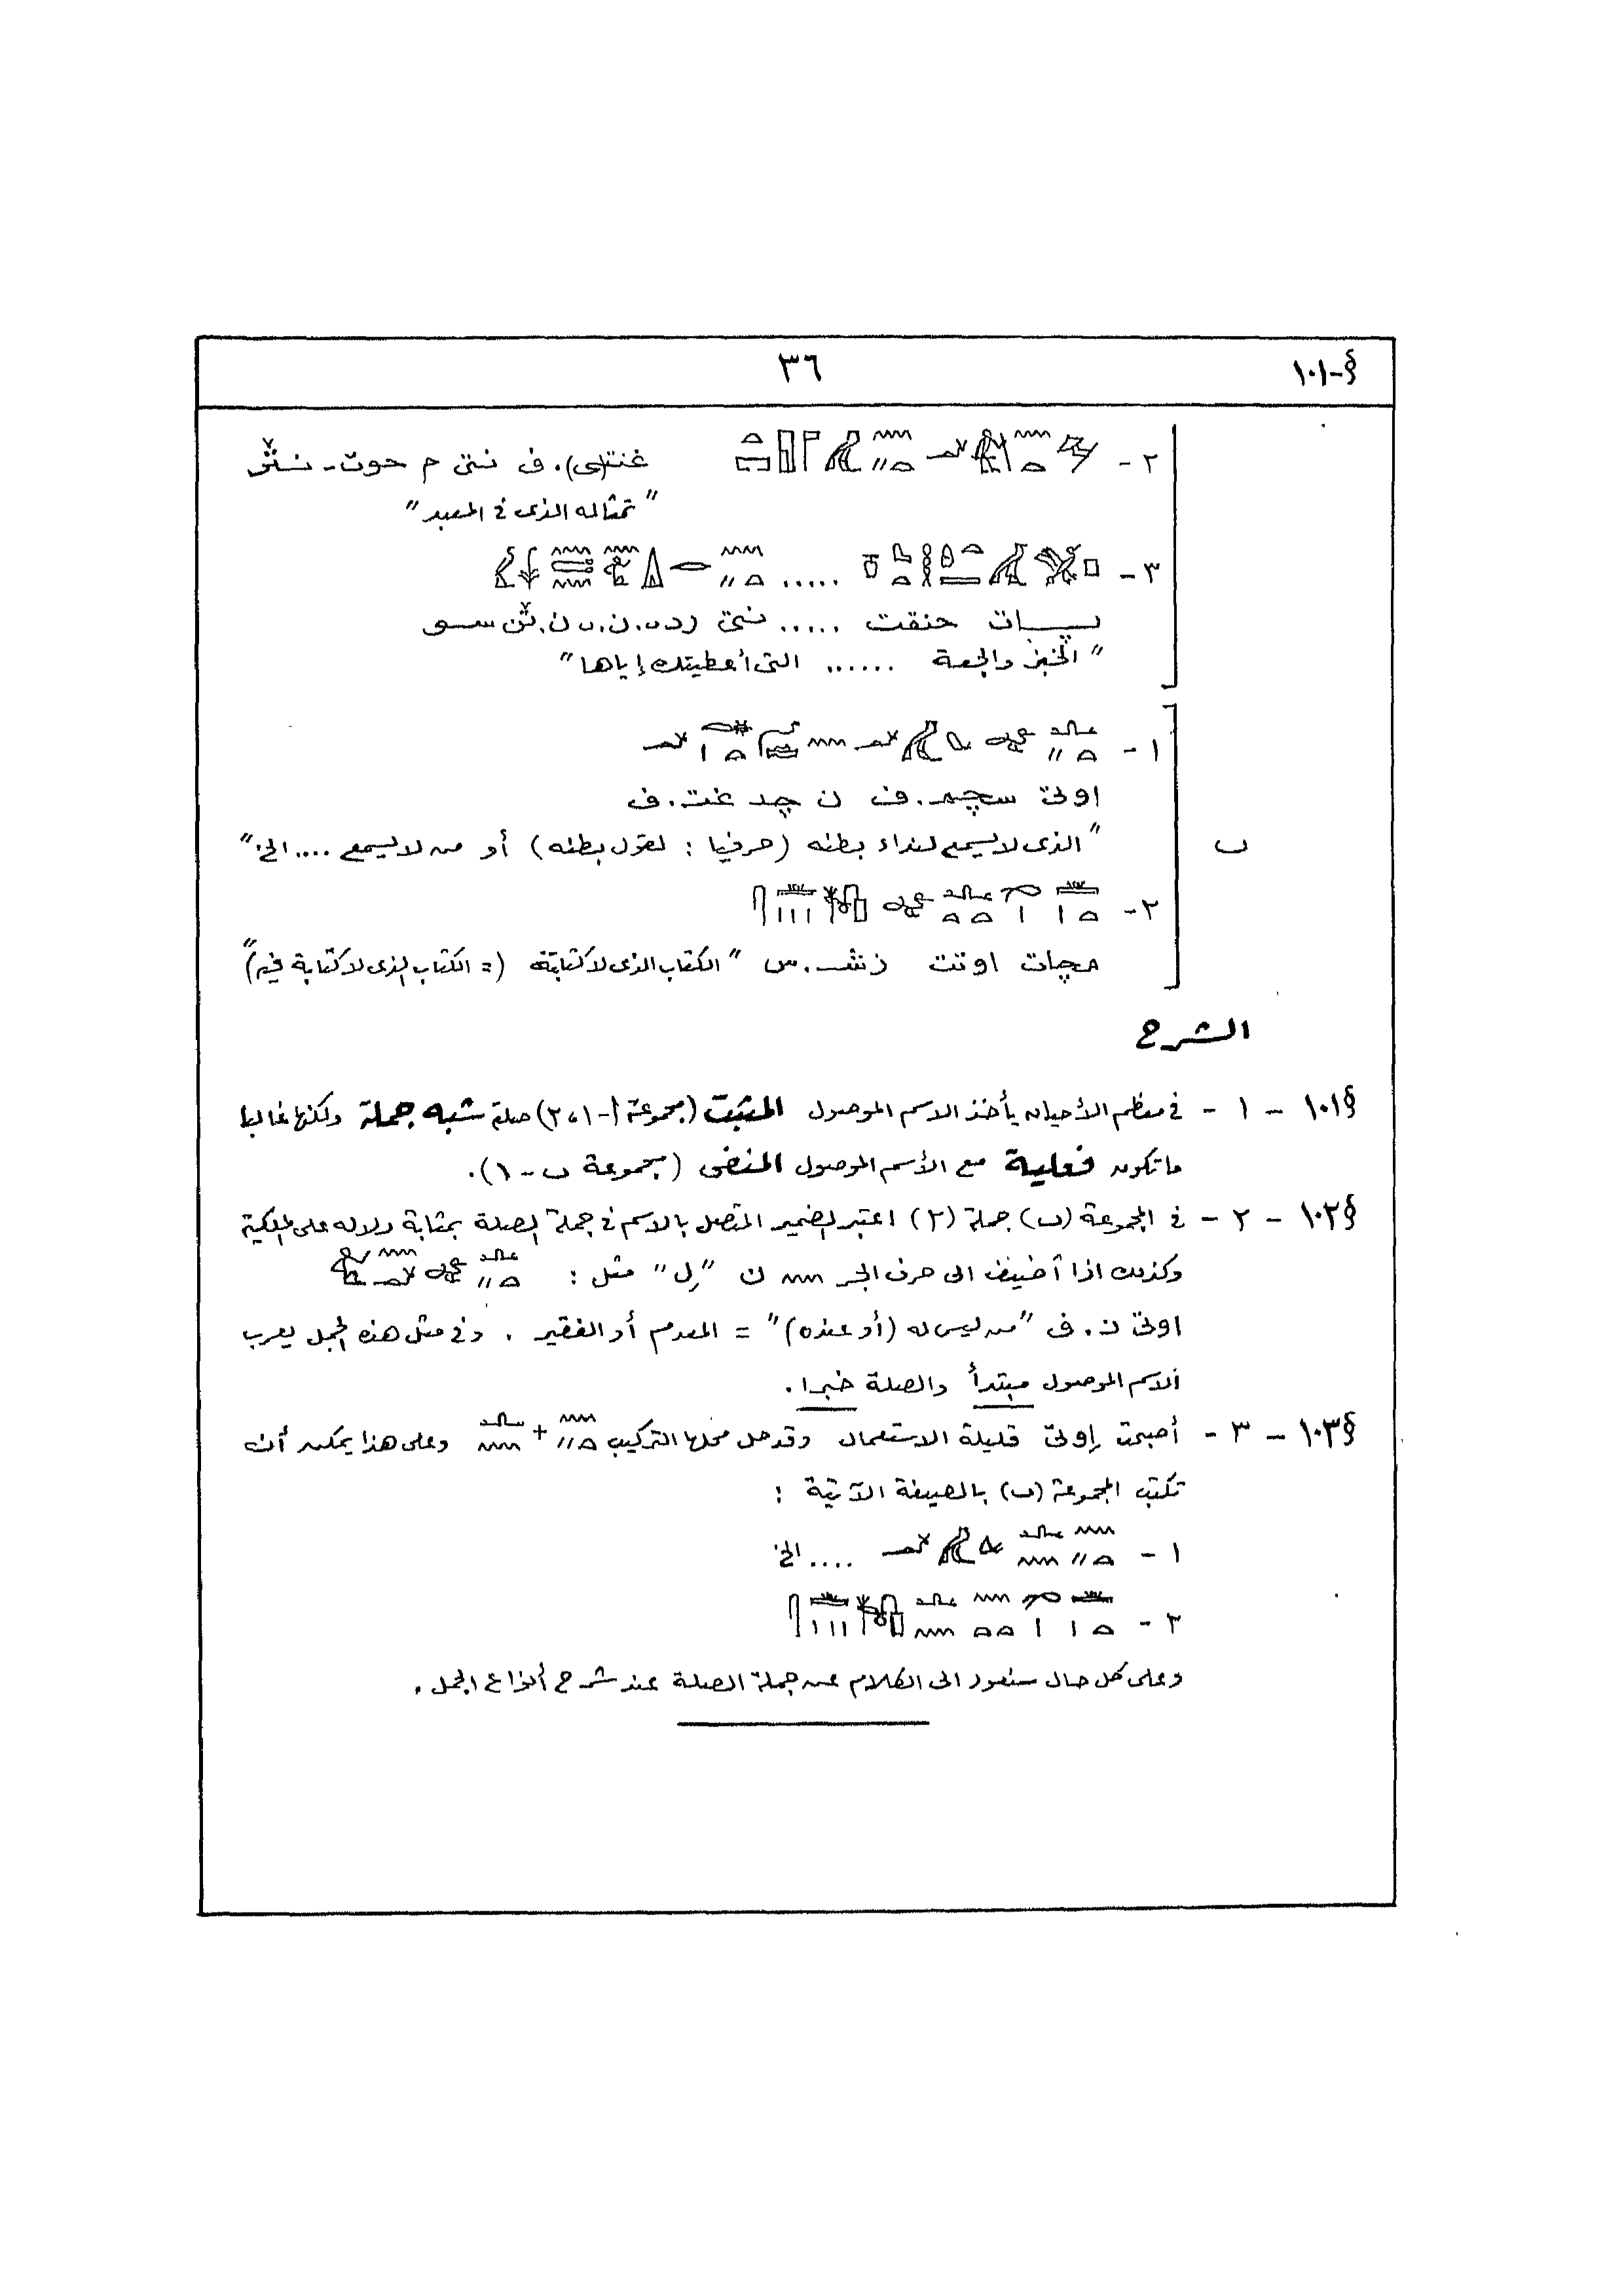 §-١٠١
٣٦
٢- خنت(ى).ف نتى م حوت-نثر
"تمثاله الذى فى المعبد"
٣- .....
حنقت ..... نتى سو
"الخبز والجعة ...... التى أعطيتك إياها"
١-
اوتى سچم.ف ن چد خت.ف
ب
"الذى لا يسمع لنداء بطنه (حرفيا : لقول بطنه) أو من لا يسمع .... الخ."
٢-
مچات اوتت زش.س "الكتاب الذى لا كتابته (= الكتاب الذى لا كتابة فيه)"
الشرح
§١٠١ - ١ - فى معظم الأحيان يأخذ الاسم الموصول المثبت (مجموعة أ-١،٢) صلة شبه جملة ولكنها غالبا
ما تكون فعلية مع الأسم الموصول المنفى (مجموعة ب-١).
§١٠٢ - ٢ - فى المجموعة (ب) جملة (٢) اعتبر الضمير المتصل بالاسم فى جملة الصلة بمثابة دلالة على الملكية
وكذلك اذا أضيف الى حرف الجر ن "لِ" مثل :
اوتى ن.ف "من ليس له (أو عنده)" = المعدم أو الفقير . وفى مثل هذه الجمل يعرب
الاسم الموصول مبتدأ والصلة خبرا.
§١٠٣ - ٣ - أصبحت إوتى قليلة الاستعمال وقد حل محلها التركيب + وعلى هذا يمكن أن
تكتب المجموعة (ب) بالصيغة الآتية :
١- .... الخ.
٢-
وعلى كل حال سنعود الى الكلام عن جملة الصلة عند شرح أنواع الجمل.